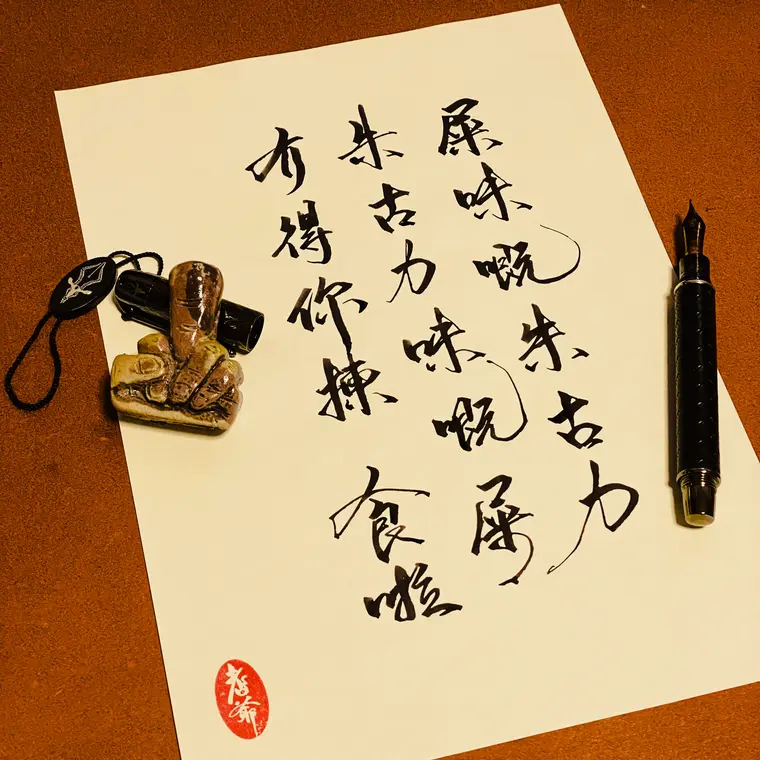 屎味嘅朱古力
朱古力味嘅屎
冇得你揀食啦